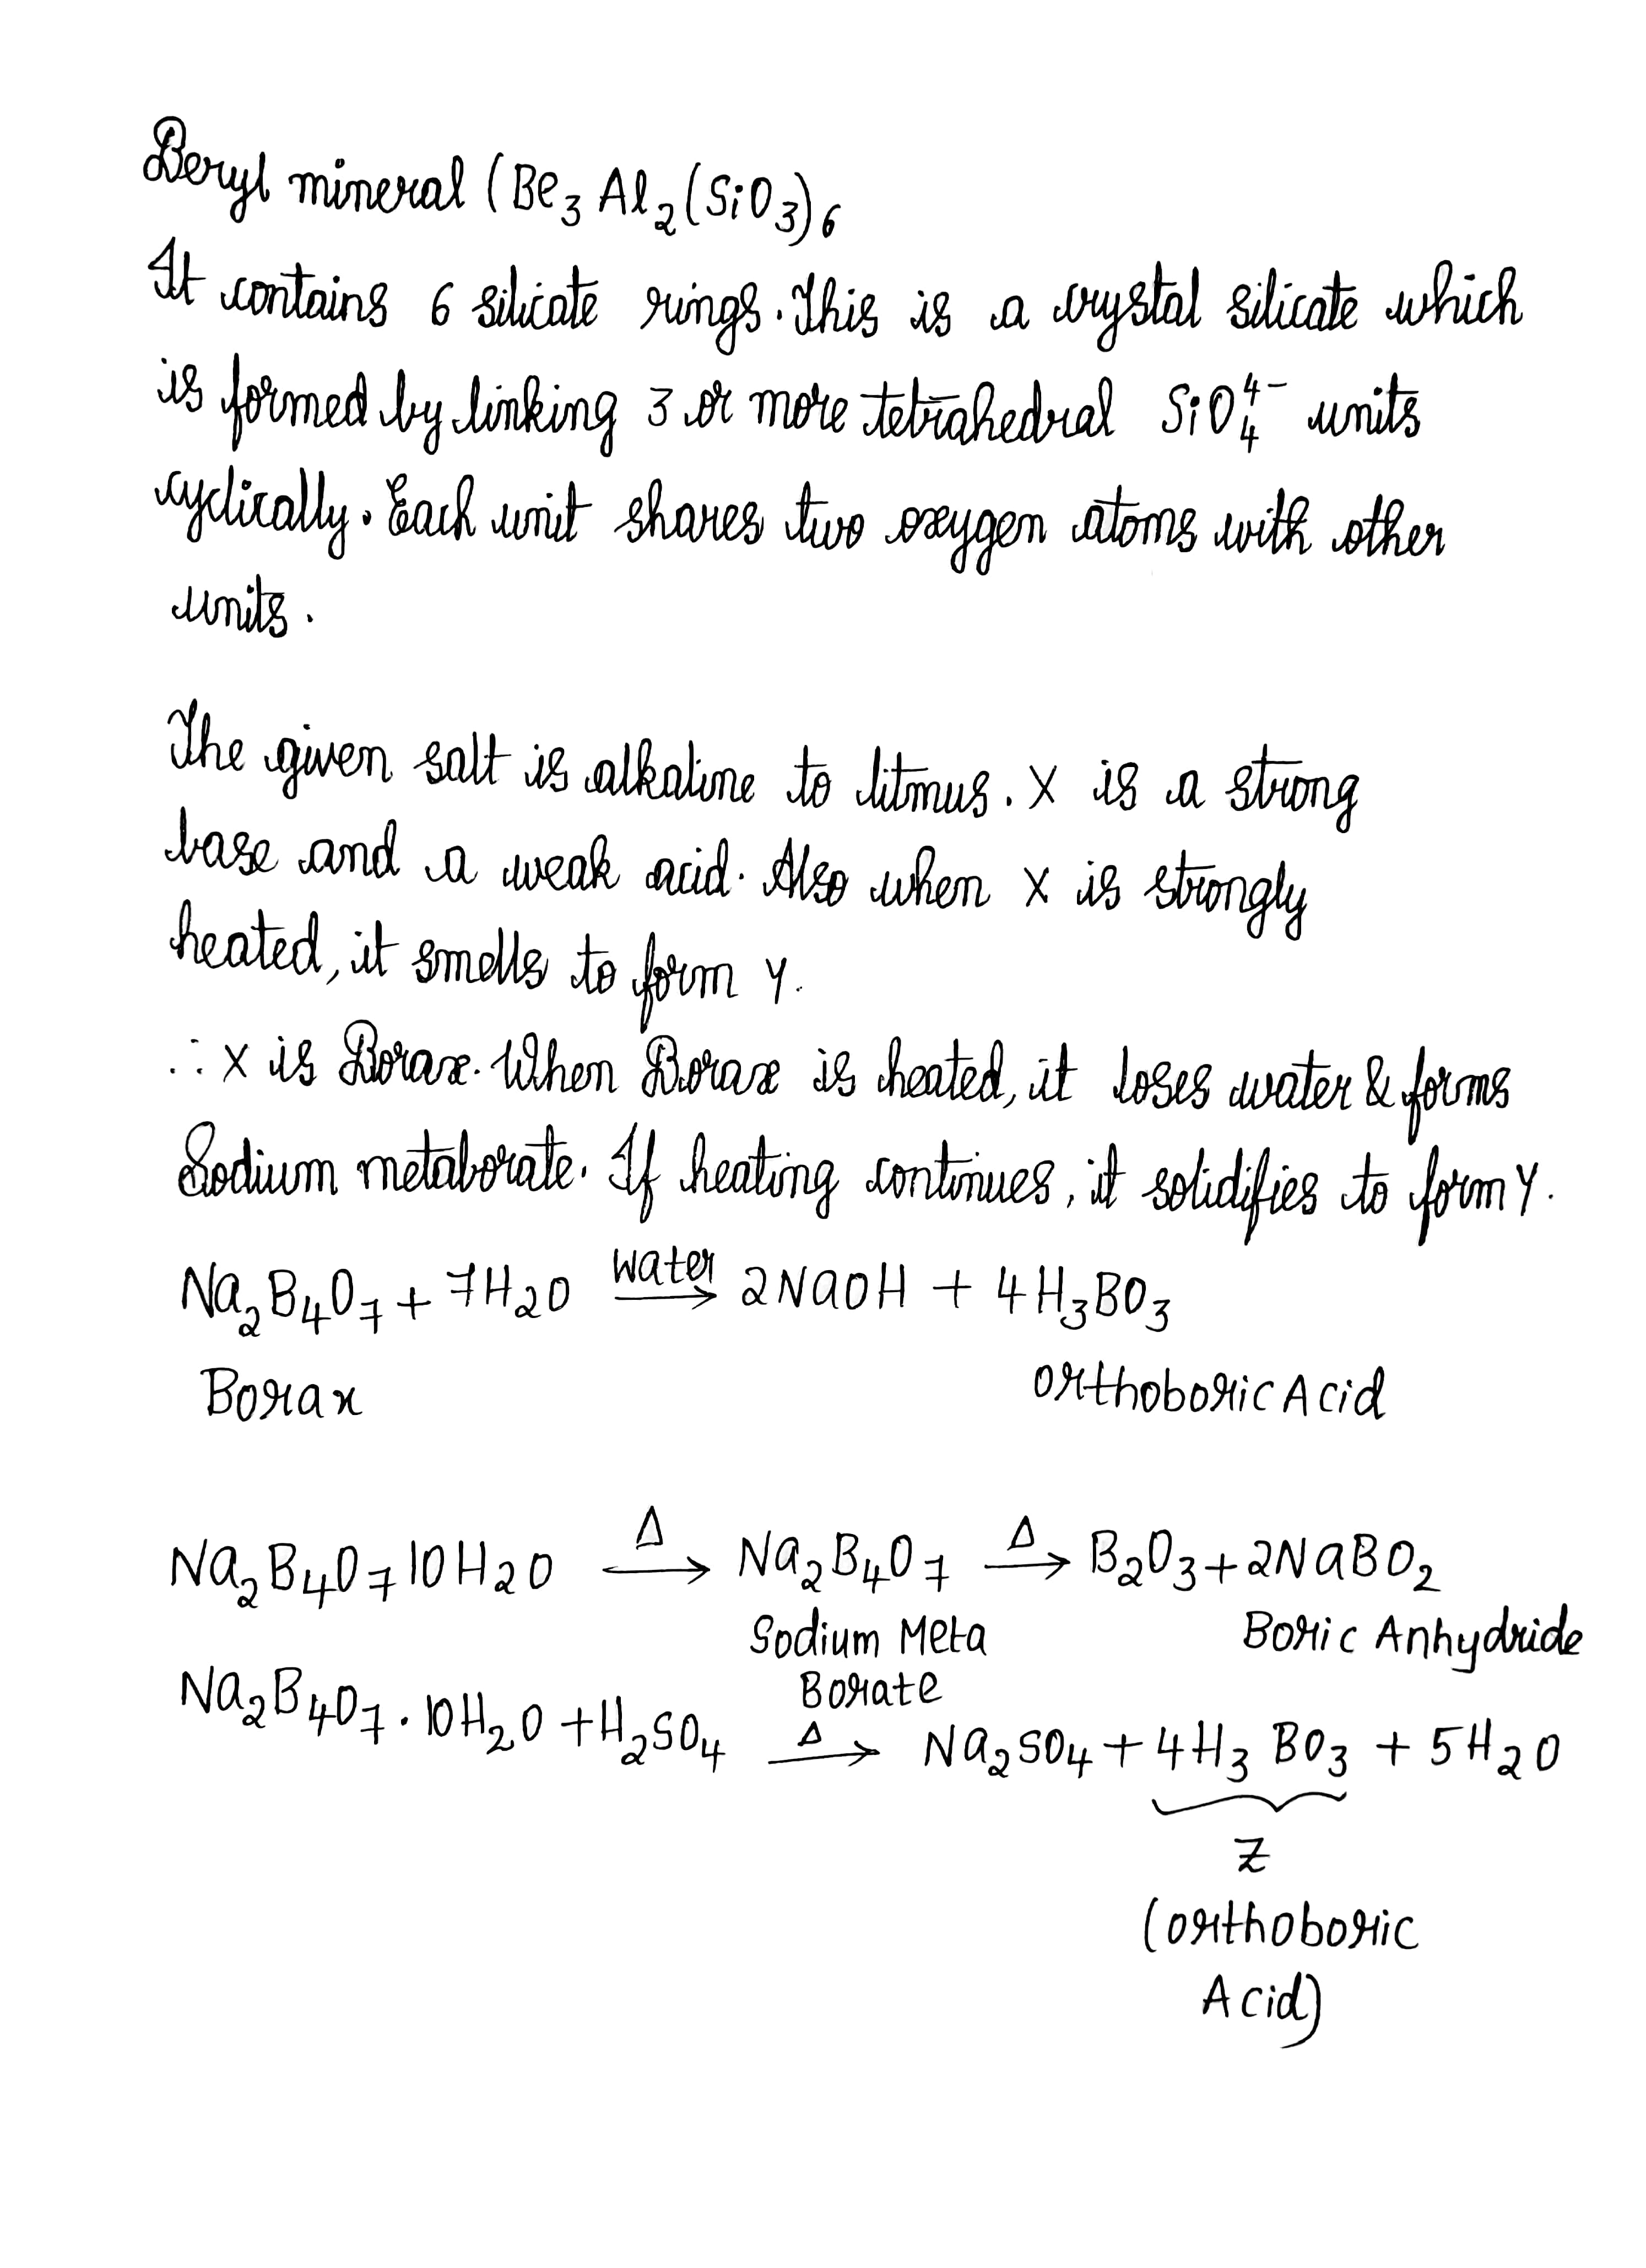 Beryl mineral (Be3 Al2(SiO3)6
It contains 6 silicate rings. This is a crystal silicate which
is formed by linking 3 or more tetrahedral SiO4^4- units
cyclically. Each unit shares two oxygen atoms with other
units.
The given salt is alkaline to litmus. X is a strong
base and a weak acid. Also when X is strongly
heated, it smells to form Y.
∴ X is Borax. When Borax is heated, it loses water & forms
Sodium metaborate. If heating continues, it solidifies to form Y.
Na2B4O7 + 7H2O water→ 2NaOH + 4H3BO3
Borax orthoboric Acid
Na2B4O7 10H2O Δ→ Na2B4O7 Δ→ B2O3 + 2NaBO2
Sodium Meta Borate Boric Anhydride
Na2B4O7 · 10H2O + H2SO4 Δ→ Na2SO4 + 4H3 BO3 + 5H2O
Z
(orthoboric
Acid)